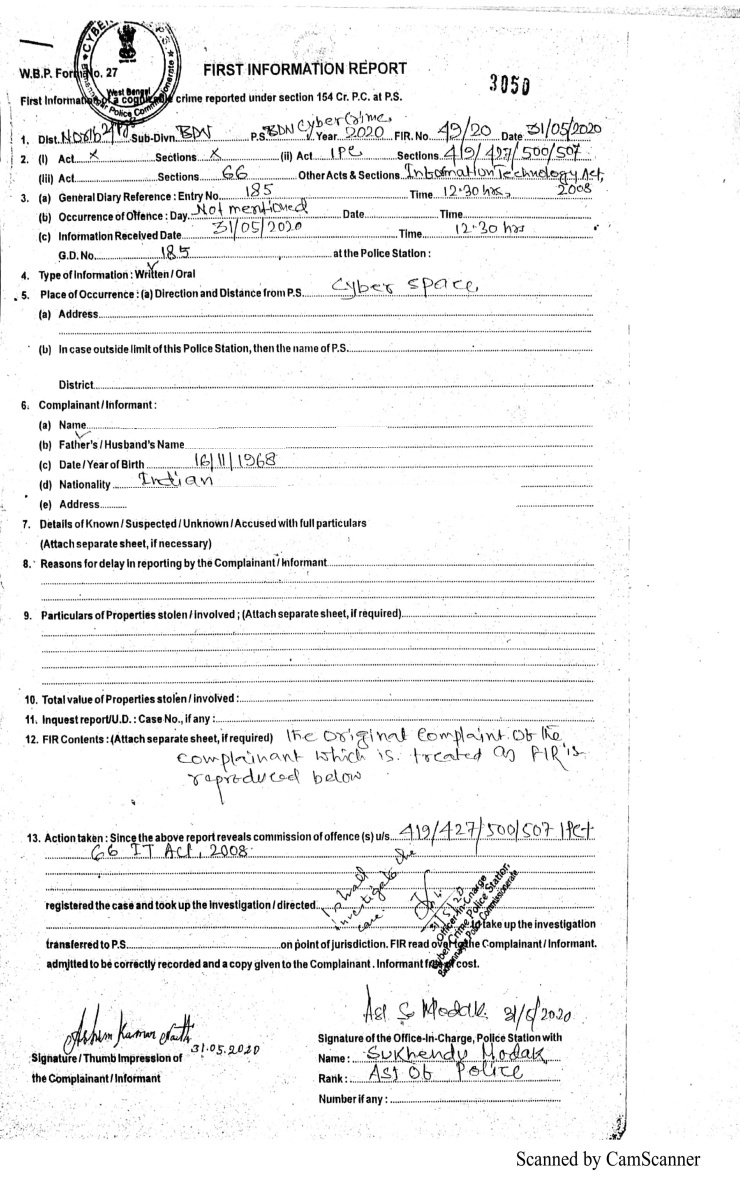 CYBER P.S.
West Bengal
Bidhannagar Police Commissionerate
W.B.P. Form No. 27
FIRST INFORMATION REPORT
3050
First Information of a cognizable crime reported under section 154 Cr. P.C. at P.S.
1. Dist. North 24 Pgs Sub-Divn. BDN P.S. BDN Cyber Crime Year 2020 FIR. No. 49/20 Date 31/05/2020
2. (I) Act X Sections X (ii) Act IPC Sections 419/427/500/507
(iii) Act Sections 66 Other Acts & Sections Information Technology Act, 2008
3. (a) General Diary Reference : Entry No. 185 Time 12.30 hrs,
(b) Occurrence of Offence : Day Not mentioned Date Time
(c) Information Received Date 31/05/2020 Time 12.30 hrs
G.D. No. 185 at the Police Station :
4. Type of Information : Written / Oral
5. Place of Occurrence : (a) Direction and Distance from P.S. Cyber space,
(a) Address
(b) In case outside limit of this Police Station, then the name of P.S.
District
6. Complainant / Informant :
(a) Name
(b) Father's / Husband's Name
(c) Date / Year of Birth 16/11/1968
(d) Nationality Indian
(e) Address
7. Details of Known / Suspected / Unknown / Accused with full particulars
(Attach separate sheet, if necessary)
8. Reasons for delay in reporting by the Complainant / Informant
9. Particulars of Properties stolen / involved ; (Attach separate sheet, if required)
10. Total value of Properties stolen / involved :
11. Inquest report/U.D. : Case No., if any :
12. FIR Contents : (Attach separate sheet, if required) The original complaint of the
complainant which is treated as FIR is
reproduced below
13. Action taken : Since the above report reveals commission of offence (s) u/s. 419/427/500/507 IPC +
66 IT Act, 2008
registered the case and took up the Investigation / directed I shall investigate the case
31/5/20
Officer-In-Charge
Cyber Crime Police Station
Bidhannagar Police Commissionerate
to take up the investigation
transferred to P.S. on point of jurisdiction. FIR read over to the Complainant / Informant.
admitted to be correctly recorded and a copy given to the Complainant . Informant free of cost.
Ashim Kumar Nath
31.05.2020
Signature / Thumb Impression of
the Complainant / Informant
ASI S Modak 31/5/2020
Signature of the Office-In-Charge, Police Station with
Name : Sukhendu Modak
Rank : ASI Of Police
Number if any :
Scanned by CamScanner